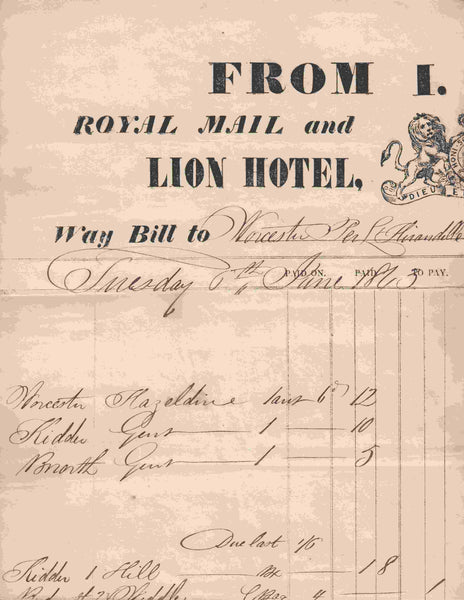 FROM I.
ROYAL MAIL and
LION HOTEL,
DIEU E
Way Bill to Worcester Per
PAID ON. PAID TO PAY.
Tuesday 6th June 1865
Worcester Hazeldine 1 6d 12
Kidder Gent 1 10
Bnorth Gent 1 5
Due last 1/6
Kidder 1 Hill Bx 1 8
4 1